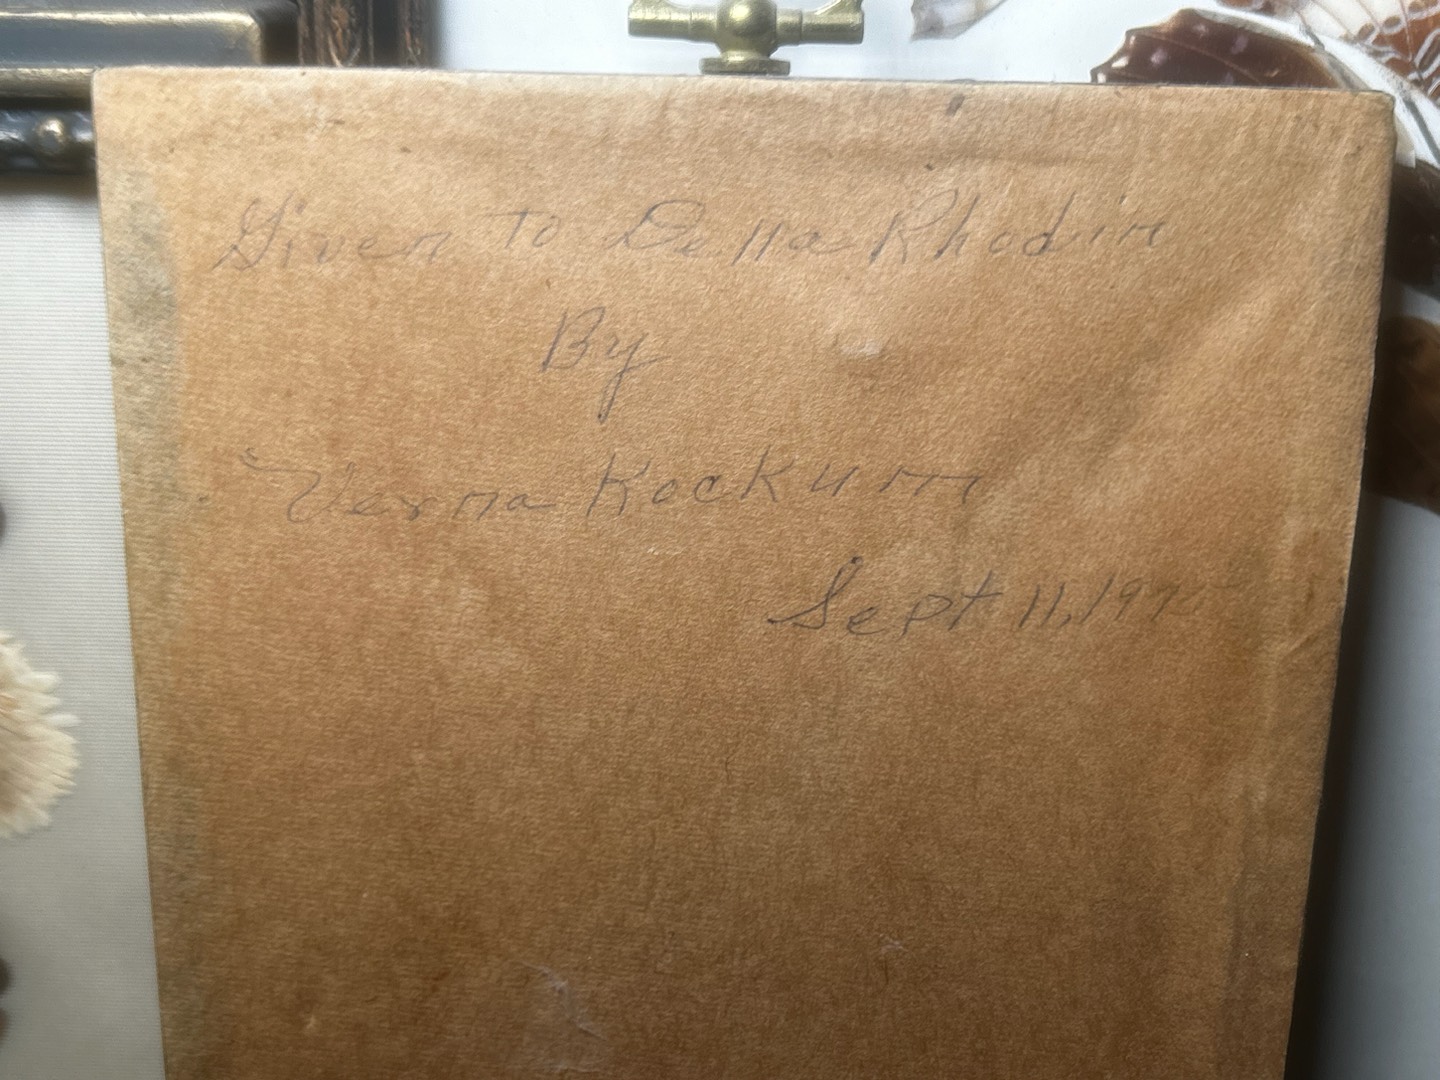 Given To Della Rhodin
By
Verna Kockum
Sept 11, 197